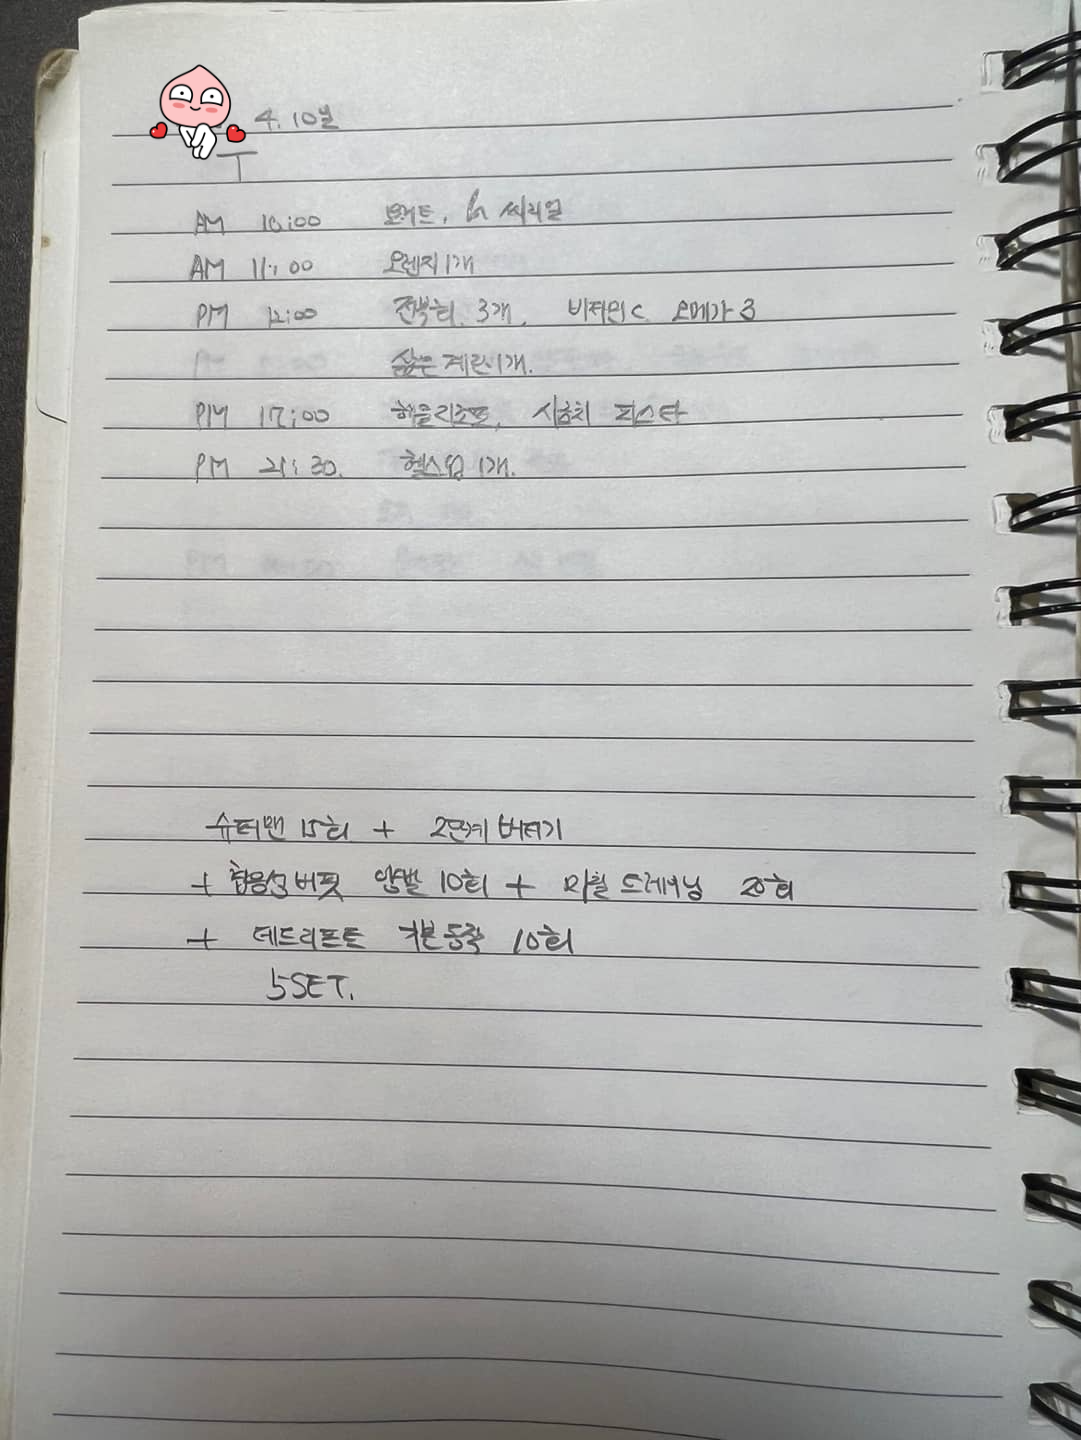 4. 10일
T
AM 10:00 토마토, 씨리얼
AM 11:00 오렌지 1개
PM 12:00 전복회 3개, 비타민C 오메가3
삶은 계란 1개.
PM 17:00 시금치 파스타
PM 21:30. 1개.
슈퍼맨 15회 + 2단계 버티기
+ 버핏 양발 10회 + 20회
+ 데드리프트 기본동작 10회
5SET.